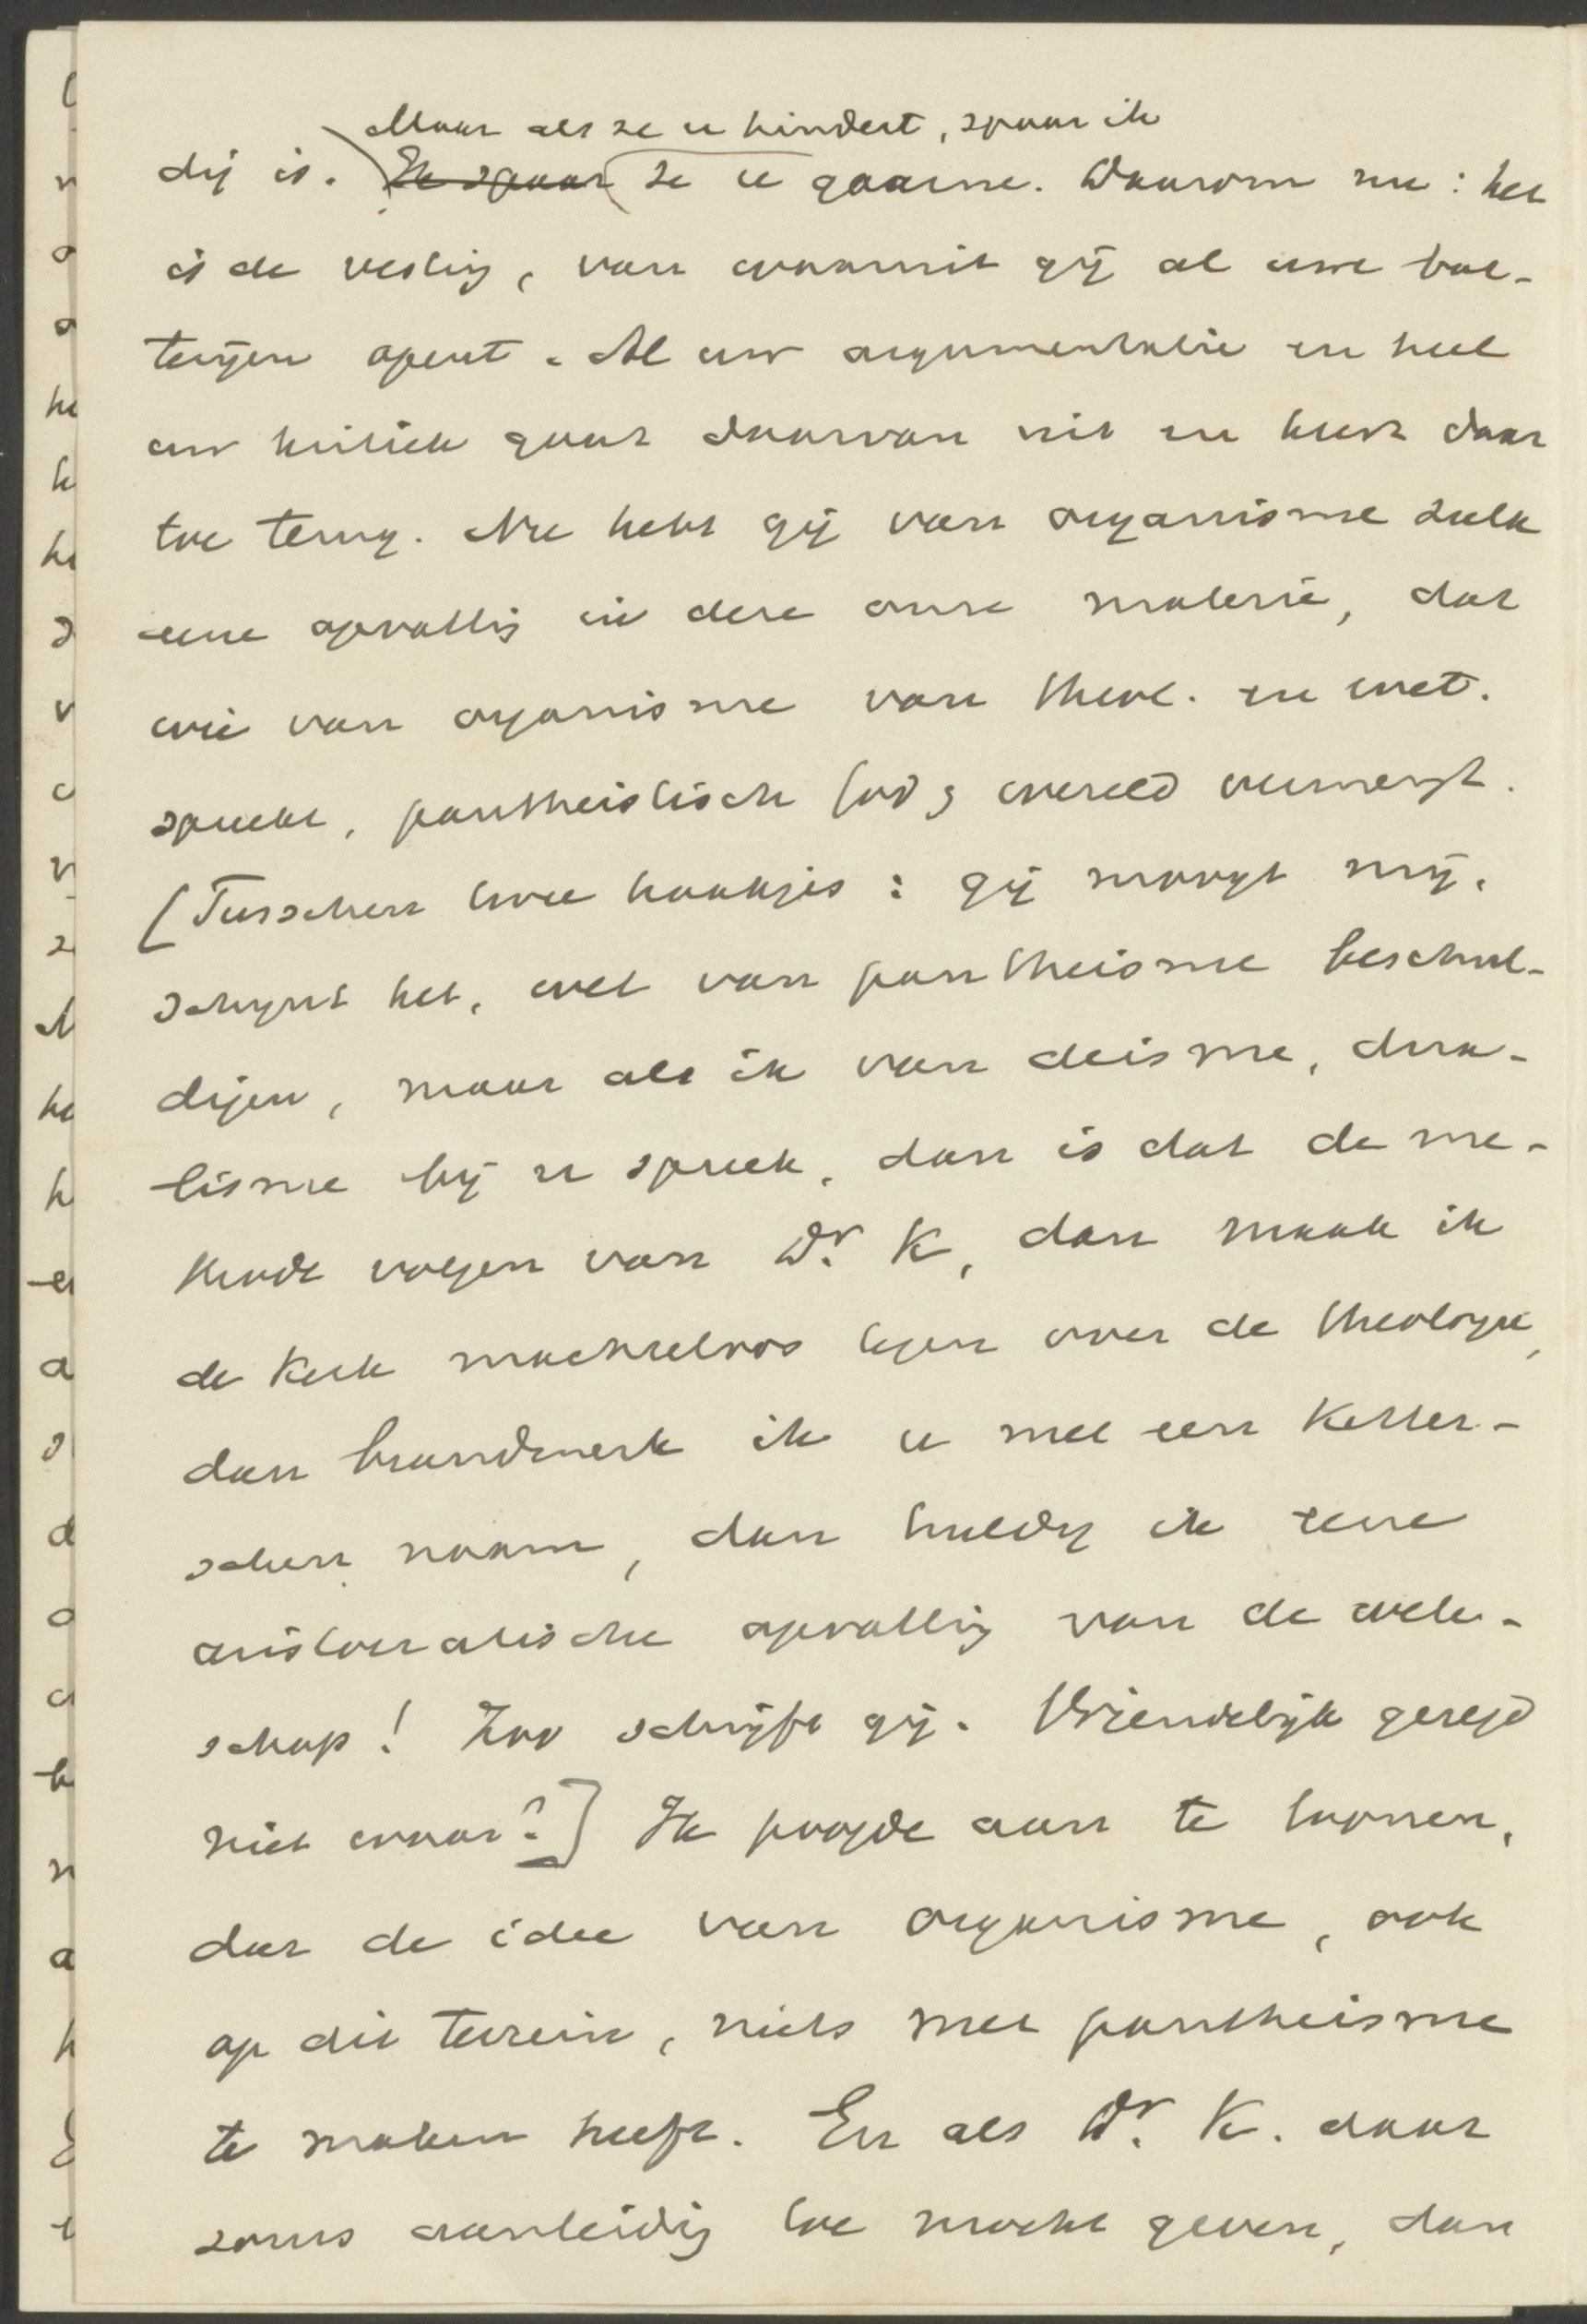 Maar als ze u hindert, spaar ik
dij is. Ik spaar ze u gaarne. Daarom nu: het
is de vesting, van waaruit gij al uwe bat-
terijen opent. Al uw argumentatie en heel
uw kritiek gaat daarvan uit en keert daar
toe terug. Nu hebt gij van organisme zulk
eene opvatting in deze onze materie, dat
wie van organisme van theol. en wet.
spreekt, pantheistisch God & wereld vermengt.
[Tusschen twee haakjes: gij moogt mij,
schijnt het, wel van pantheisme beschul-
digen, maar als ik van deisme, dua-
lisme bij u spreek, dan is dat de me-
thode volgen van Dr. K, dan maak ik
de Kerk machteloos tegen over de theologie,
dan brandmerk ik u met een Ketter-
schen naam, dan huldig ik eene
aristocratische opvatting van de weten-
schap! Zoo schrijft gij. Vriendelijk gezegd
niet waar?] Ik poogde aan te toonen,
dat de idee van organisme, ook
op dit terrein, niets met pantheisme
te maken heeft. En als Dr. K. daar
soms aanleiding toe mocht geven, dan